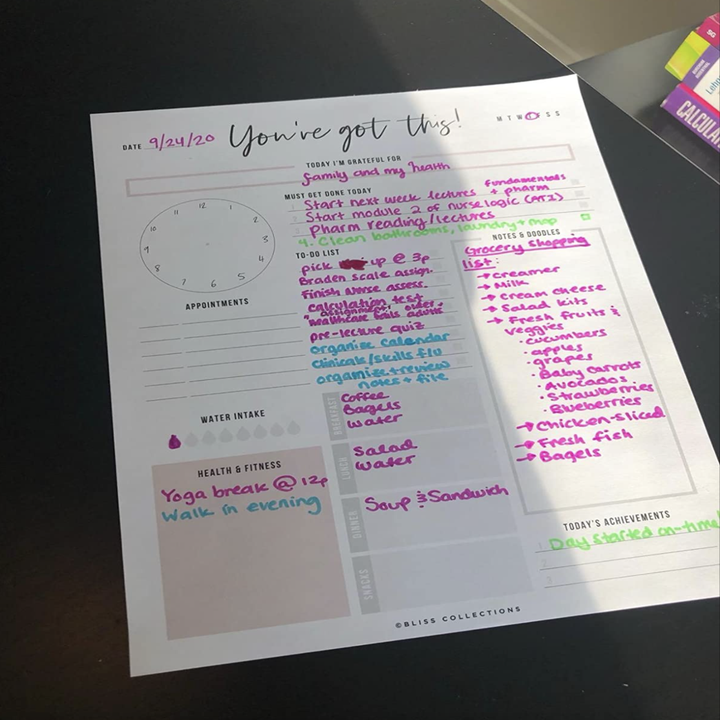 DATE 9/24/20
You've got this!
M T W T F S S
TODAY I'M GRATEFUL FOR
family and my health
MUST GET DONE TODAY
1 Start next week lectures fundamentals + pharm
2 Start module 2 of nurselogic (ATI)
3 Pharm reading/lectures
4. Clean bathrooms, laundry + mop
12
1
2
3
4
5
6
7
8
9
10
11
APPOINTMENTS
TO-DO LIST
pick up @ 3p
Braden scale assign.
Finish nurse assess.
calculation test
assignment: older
healthcare adults
pre-lecture quiz
organize calendar
clinicals/skills f/u
organize + review
notes + file
NOTES & DOODLES
Grocery shopping
list:
→ creamer
→ Milk
→ cream cheese
→ Salad kits
→ Fresh fruits &
veggies
· cucumbers
· apples
· grapes
· Baby carrots
· Avocados
· Strawberries
· Blueberries
→ Chicken-sliced
→ Fresh fish
→ Bagels
WATER INTAKE
HEALTH & FITNESS
Yoga break @ 12p
Walk in evening
BREAKFAST
Coffee
Bagels
Water
LUNCH
Salad
Water
DINNER
Soup & Sandwich
SNACKS
TODAY'S ACHIEVEMENTS
1 Day started on-time!
2
3
©BLISS COLLECTIONS
CALCULA